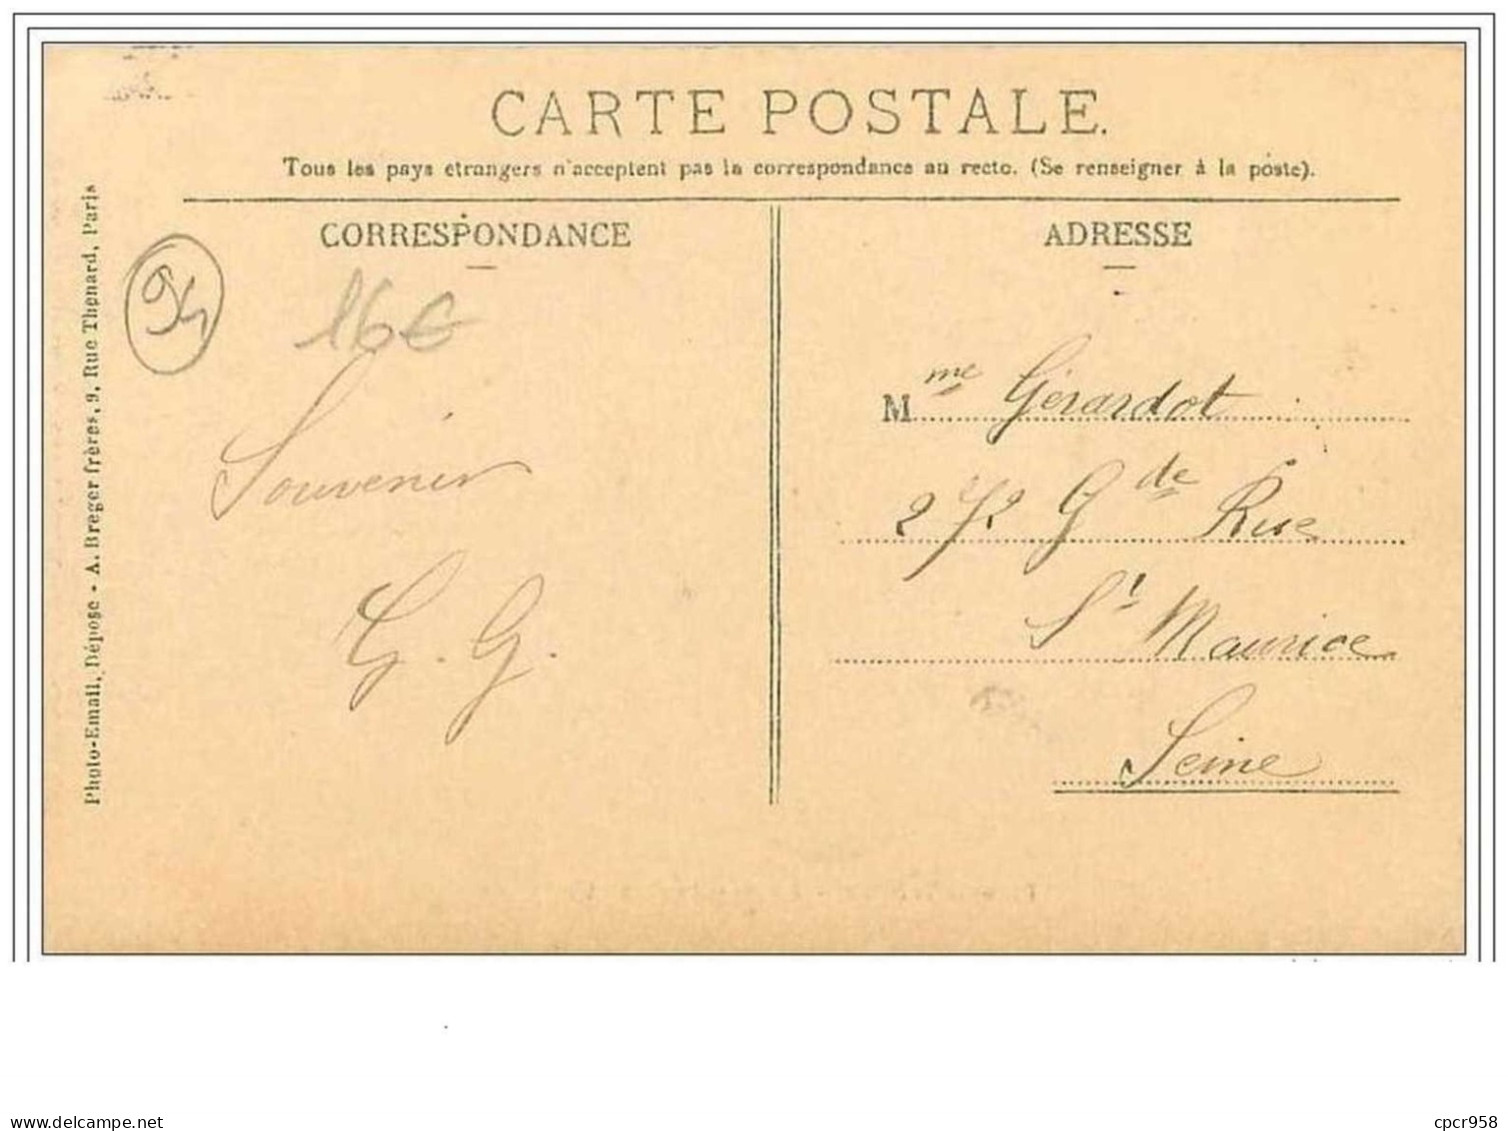 CARTE POSTALE.
Tous les pays étrangers n'acceptent pas la correspondance au recto. (Se renseigner à la poste).
CORRESPONDANCE
ADRESSE
Photo-Email, Dépose - A. Breger frères, 9, Rue Thénard, Paris
94
16€
Souvenir
G. G.
Mme Gérardot
272 Gde Rue
St Maurice
Seine
www.delcampe.net
cpcr958